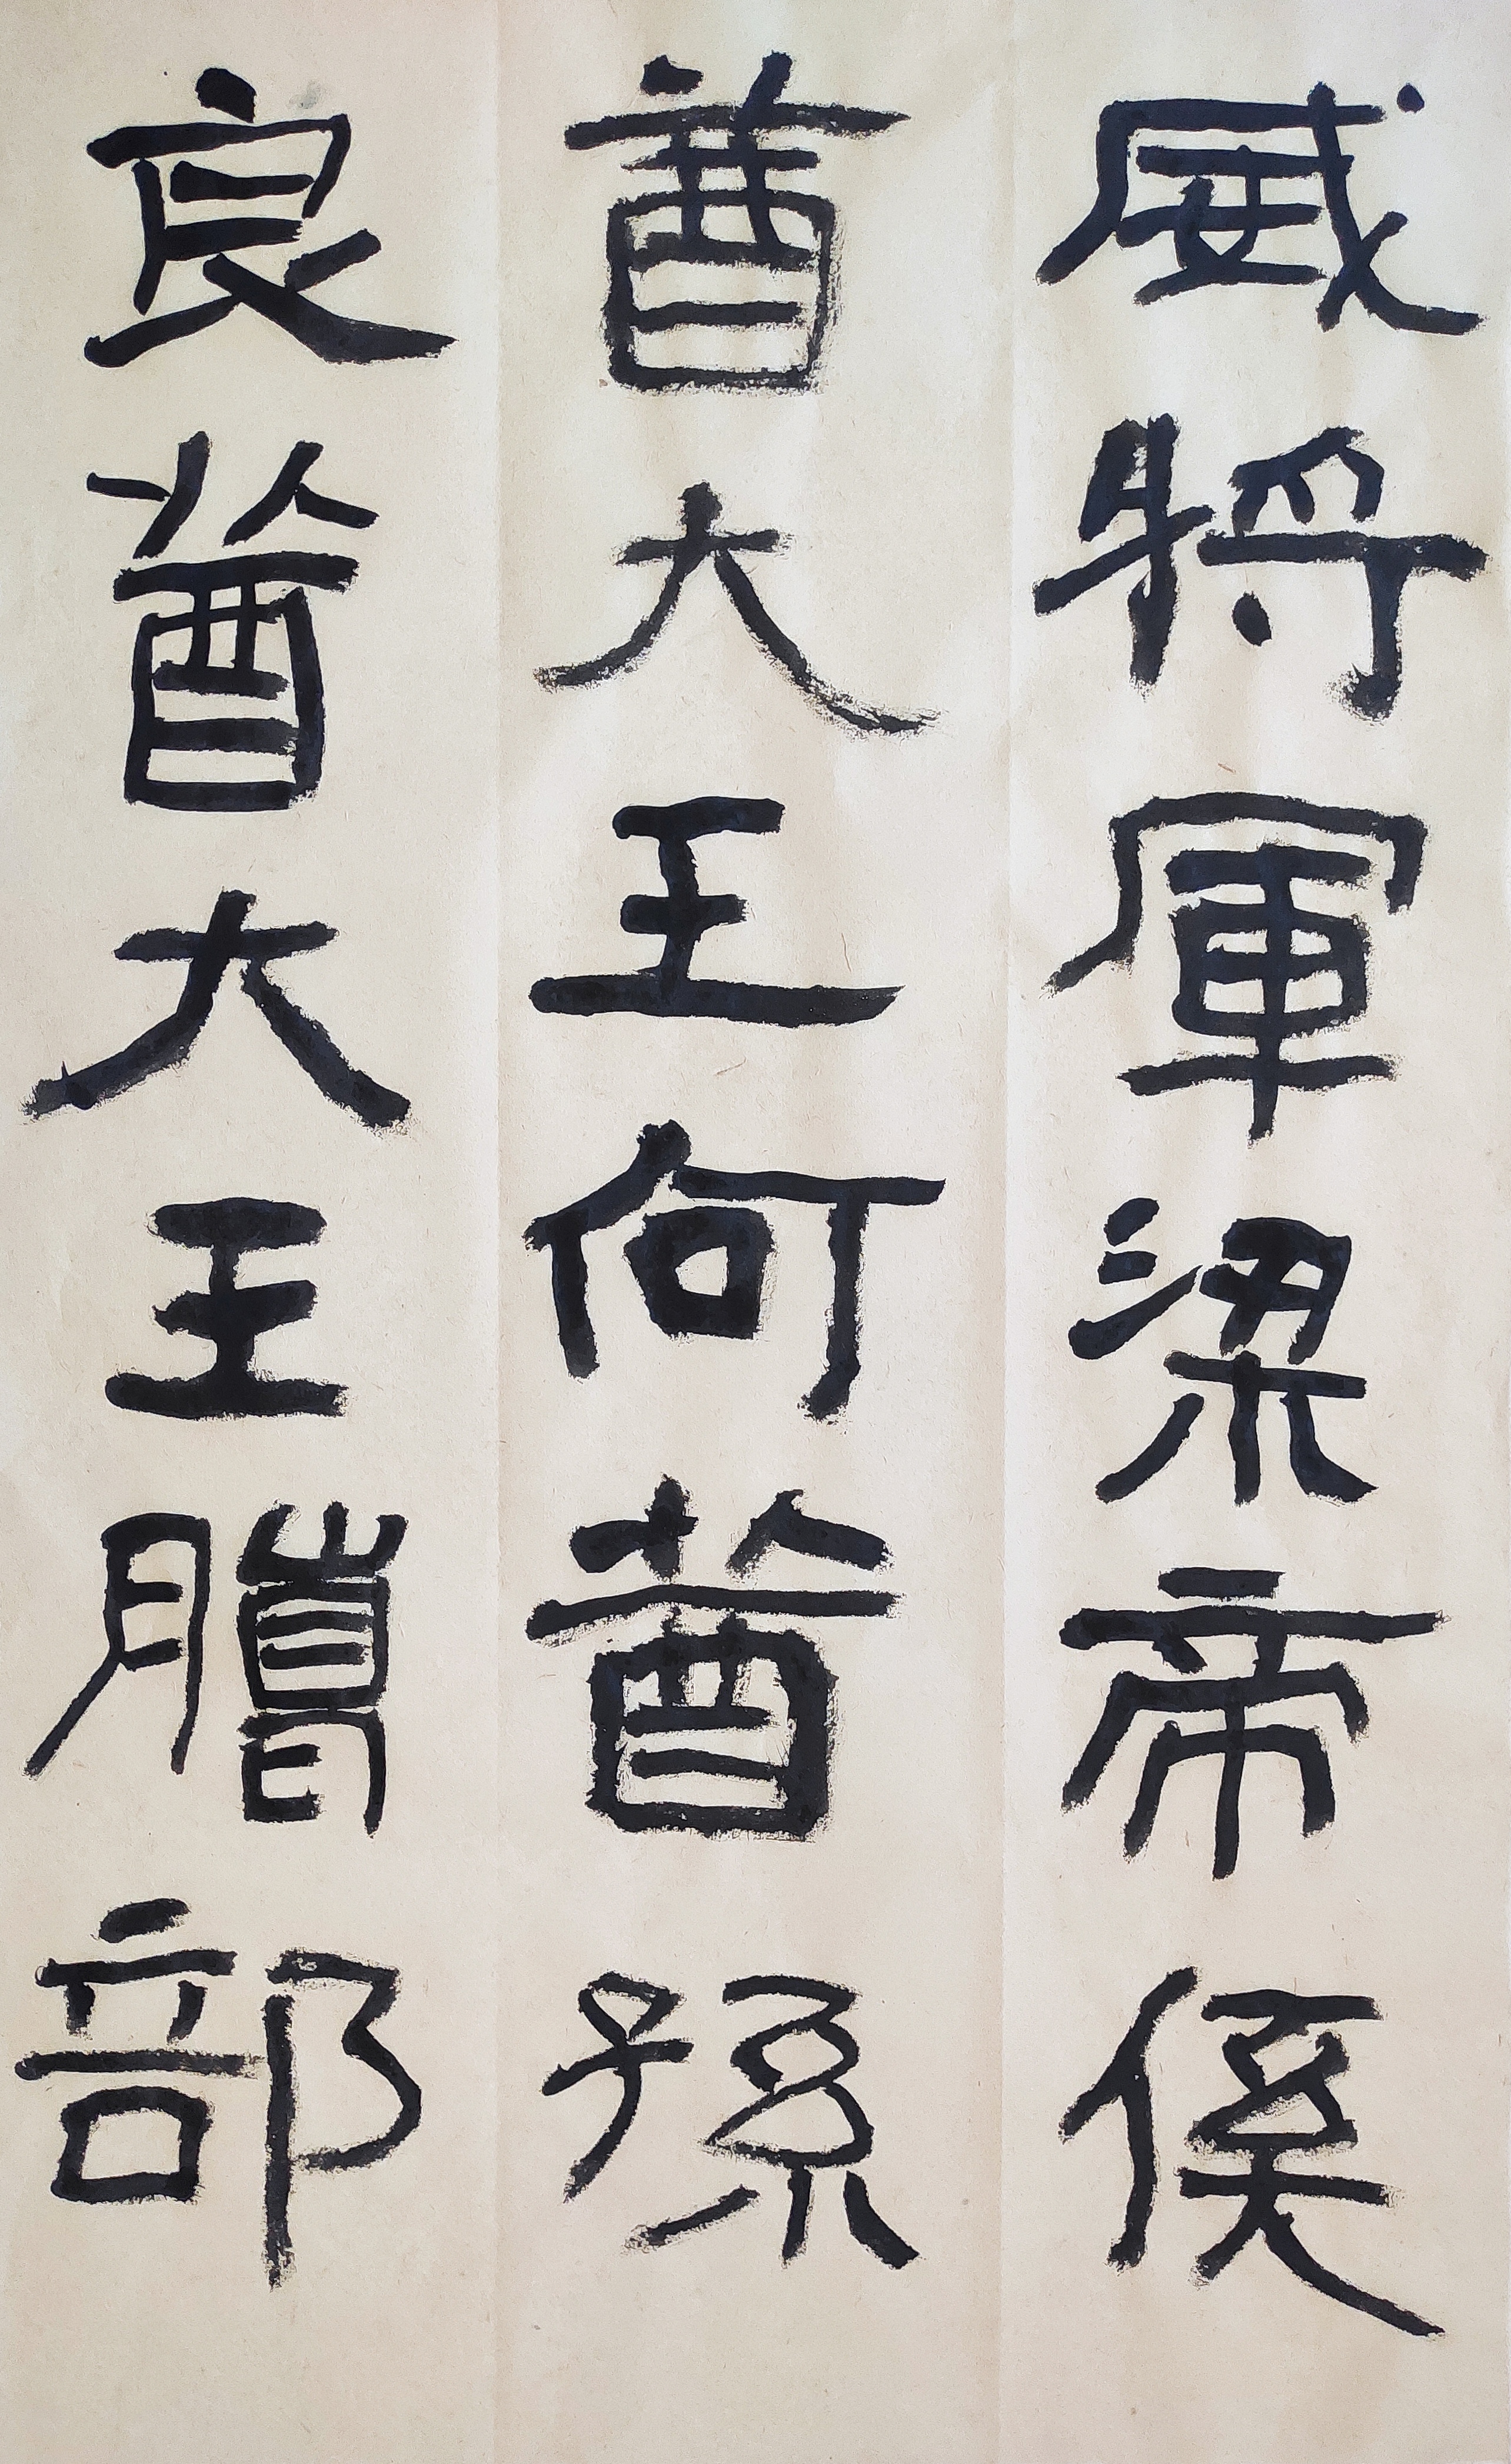 威將軍梁帝侯
酋大王何酋孫
良酋大王騰部